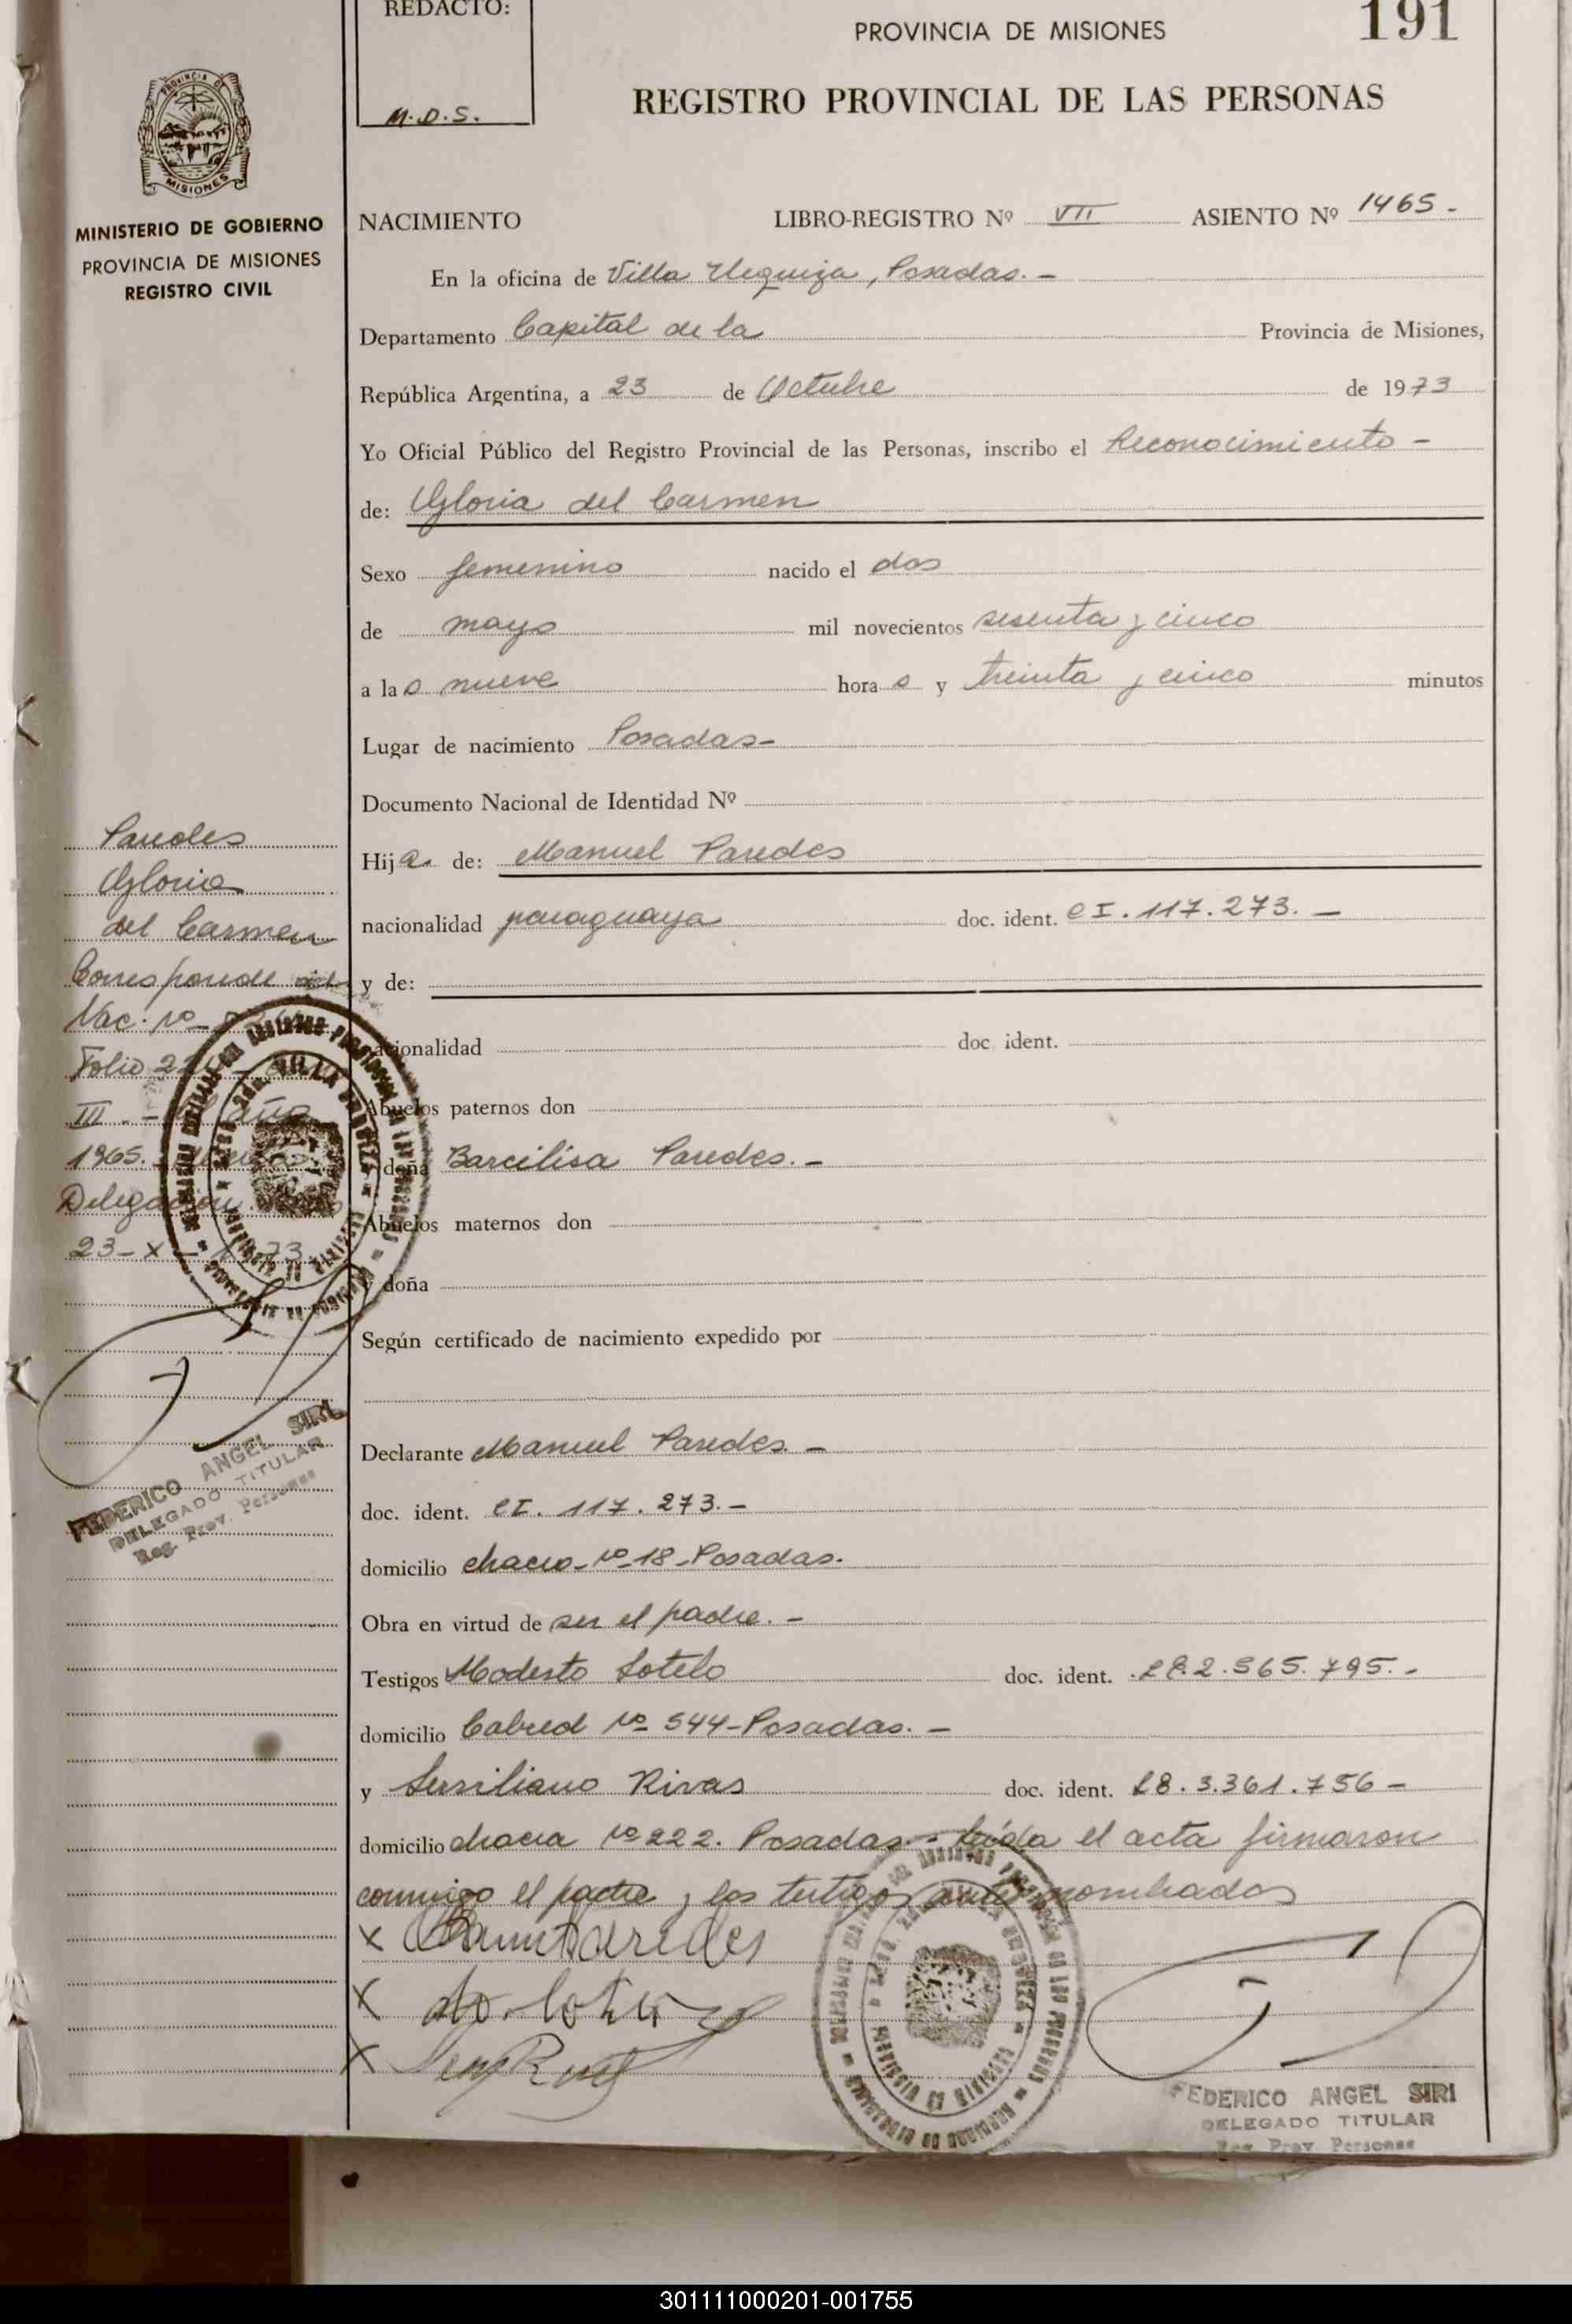 REDACTO:
M.D.S.
PROVINCIA DE MISIONES
191
REGISTRO PROVINCIAL DE LAS PERSONAS
MINISTERIO DE GOBIERNO
PROVINCIA DE MISIONES
REGISTRO CIVIL
NACIMIENTO LIBRO-REGISTRO Nº VII ASIENTO Nº 1465.-
En la oficina de Villa Urquiza, Posadas.-
Departamento Capital de la Provincia de Misiones,
República Argentina, a 23 de Octubre de 1973
Yo Oficial Público del Registro Provincial de las Personas, inscribo el Reconocimiento-
de: Gloria del Carmen
Sexo femenino nacido el dos
de mayo mil novecientos sesenta y cinco
a las nueve hora s y treinta y cinco minutos
Lugar de nacimiento Posadas-
Documento Nacional de Identidad Nº
Hija de: Manuel Paredes
nacionalidad paraguaya doc. ident. CI. 117.273.-
y de:
nacionalidad doc. ident.
Abuelos paternos don
y doña Barcilisa Paredes.-
Abuelos maternos don
y doña
Según certificado de nacimiento expedido por
Declarante Manuel Paredes.-
doc. ident. CI. 117.273.-
domicilio chacra-Nº-18-Posadas.
Obra en virtud de ser el padre.-
Testigos Modesto Sotelo doc. ident. 2.565.795.-
domicilio Cabred Nº 544-Posadas.-
y Rivas doc. ident. 3.361.756-
domicilio chacra Nº 222. Posadas.- leída el acta firmaron
conmigo el padre y los testigos antes nombrados
Paredes
Gloria
del Carmen
Corresponde
Nac. Nº
Folio
III.- año
1965.
Delegación
23-X-1973
FEDERICO ANGEL SIRI
DELEGADO TITULAR
Reg. Prov. Personas
FEDERICO ANGEL SIRI
DELEGADO TITULAR
Reg. Prov. Personas
301111000201-001755